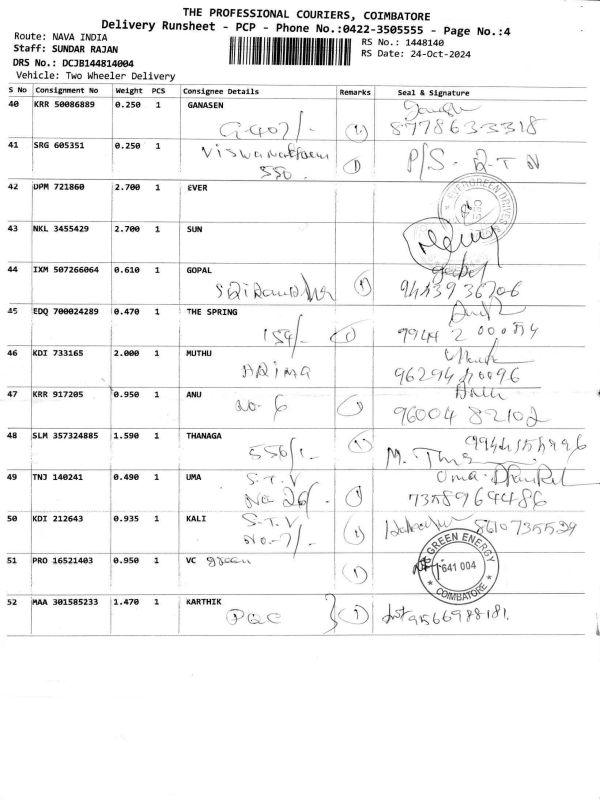 THE PROFESSIONAL COURIERS, COIMBATORE
Delivery Runsheet - PCP - Phone No.:0422-3505555 - Page No.:4
Route: NAVA INDIA
RS No.: 1448140
Staff: SUNDAR RAJAN
RS Date: 24-Oct-2024
DRS No.: DCJB144814004
Vehicle: Two Wheeler Delivery
S No Consignment No Weight PCS Consignee Details Remarks Seal & Signature
40 KRR 50086889 0.250 1 GANASEN
G-407/- 1 8778633318
41 SRG 605351 0.250 1
550 1 P/S - R-T N
42 DPM 721860 2.700 1 EVER
EVERGREEN DRIVES
43 NKL 3455429 2.700 1 SUN
44 IXM 507266064 0.610 1 GOPAL
1 9443936206
45 EDQ 700024289 0.470 1 THE SPRING
154/- 1
46 KDI 733165 2.000 1 MUTHU
47 KRR 917205 0.950 1 ANU
NO-6 1 9600482102
48 SLM 357324885 1.590 1 THANAGA
556/- 1 M.
49 TNJ 140241 0.490 1 UMA S.T.V Uma
No 26/- 1 7358964486
50 KDI 212643 0.935 1 KALI S.T.V
No-7/- 1 8610735529
51 PRO 16521403 0.950 1 VC green
1 GREEN ENERGY
641 004
COIMBATORE
52 MAA 301585233 1.470 1 KARTHIK
PQC 1 9566988181